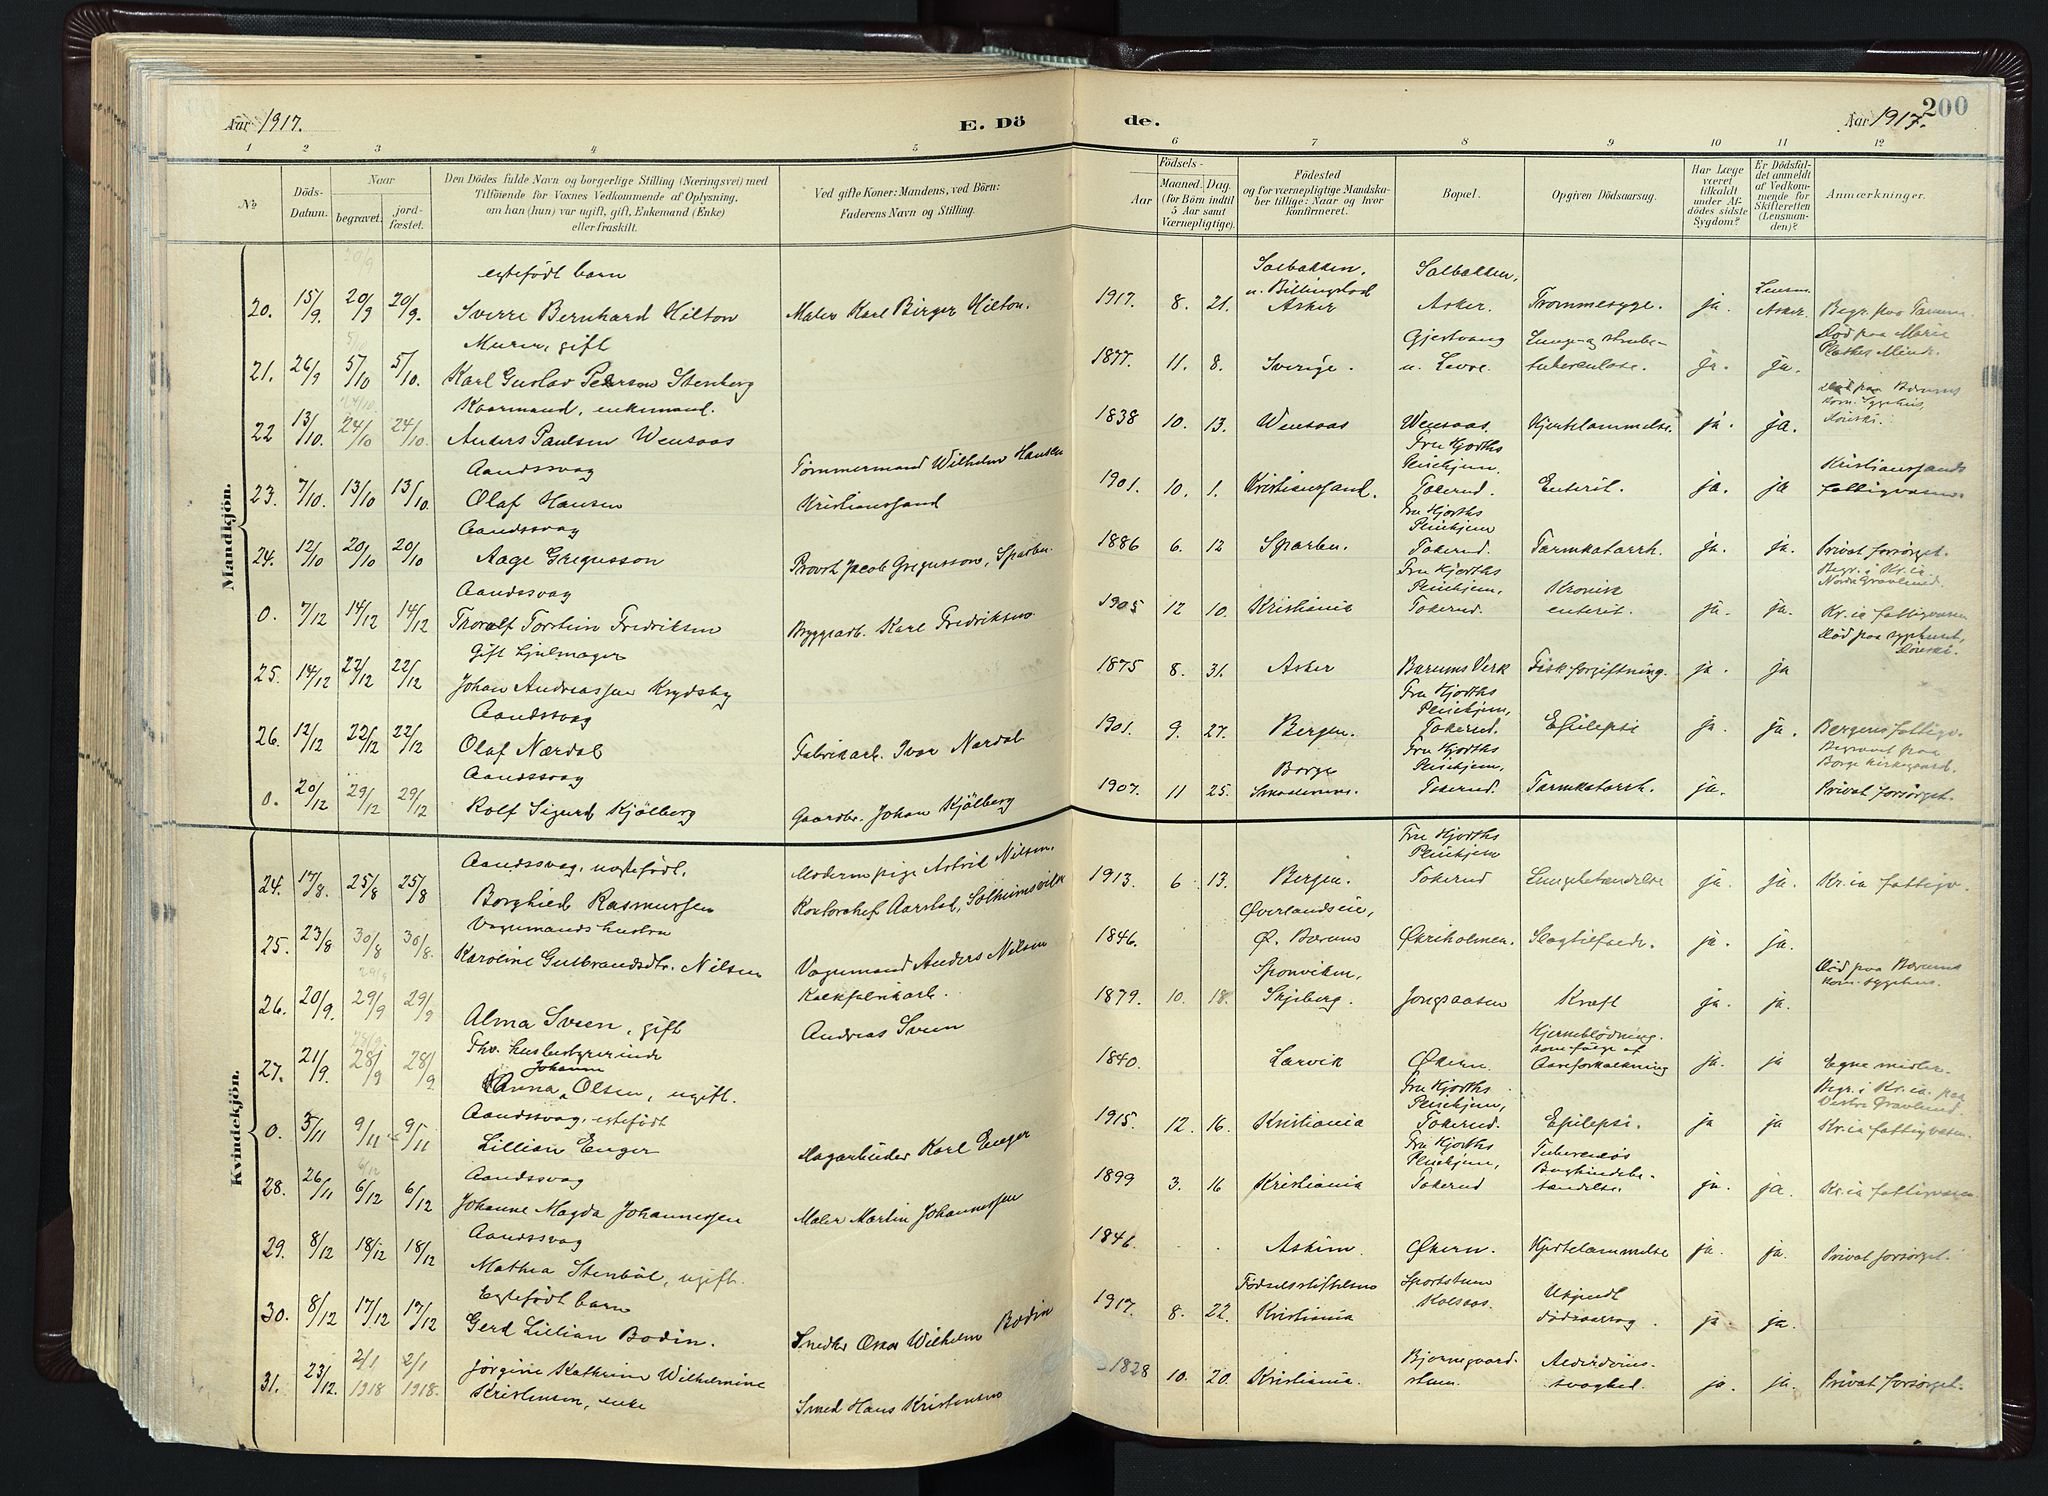 200
Aar 1917.
E. Dö
de.
Aar 1917.
1 2 3 4 5 6 7 8 9 10 11 12
No
Döds-
Datum.
Naar
begravet.
jord-
fæstet.
Den Dödes fulde Navn og borgerlige Stilling (Næringsvei) med
Tilföiende for Voxnes Vedkommende af Oplysning,
om han (hun) var ugift, gift, Enkemand (Enke)
eller fraskilt.
Ved gifte Koner: Mandens, ved Börn:
Faderens Navn og Stilling.
Födsels-
Aar
Maaned. Dag.
(for Börn indtil
5 Aar samt
Værnepligtige).
Födested
og for værnepligtige Mandska-
ber tillige: Naar og hvor
konfirmeret.
Bopæl.
Opgiven Dödsaarsag.
Har Læge
været
tilkaldt
under Af-
dödes sidste
Sygdom?
Er Dödsfal-
det anmeldt
af Vedkom-
mende for
Skifteretten
(Lensman-
den)?
Anmærkninger.
Mandkjön.
20/9
egtefödt barn
Solbakken,
Solbakken,
u. Billingstad
Lensm.
20. 15/9. 20/9 20/9. Sverre Bernhard Hilton Maler Karl Birger Hilton. 1917. 8. 21. Asker Asker. Trommesyge. ja. Asker. Begr. paa Tanum
Murer, gift
Gjestvang
Lunge- og strube-
Död paa Marie
Plathes Minde.
21. 26/9 5/10 5/10. Karl Gustav Peterson Stenberg 1877. 11. 8. Sverige. u. Levre. tuberculose. ja. ja.
24/10.
Kaarmand, enkemand.
död paa Bærums
kom. Sygehus,
22 13/10. 24/10 24/10. Anders Paulsen Wensaas 1838 10. 13. Wensaas Wensaas. Hjertelammelse. ja. ja.
Aandssvag
Tømmermand Wilhelm Hansen
Fru Hjorths
Pleiehjem,
Kristianssands
23. 7/10. 13/10 13/10. Olaf Hansen Kristianssand 1901. 10. 1. Kristianssand. Tokerud. Enterit. ja. ja fattigvæsen.
Aandssvag
Fru Hjorths
Pleiehjem
24. 12/10 20/10 20/10 Aage Gregusson Provst Jacob Gregusson, Sparbu. 1886 6. 12 Sparbu. Tokerud. Tarmkatarrh. ja. ja. Privat forsørget.
Aandssvag
Fru Hjorths
Pleiehjem,
Kronisk
Begr. i Kr.ia.
Nordre Gravlund.
0. 7/12 14/12 14/12 Thoralf Torstein Fredriksen Bryggearb. Karl Fredriksen 1905 12 10. Kristiania Tokerud. enterit. ja. ja. Kr.ia fattigvæsen
Gift hjulmager
Död paa sygehuset,
25. 14/12 22/12 22/12 Johan Andreassen Krydsby 1875 8. 31. Asker Bærums Verk Fiskforgiftning. ja. ja
Aandssvag
Fru Hjorths
Pleiehjem,
26. 12/12 22/12 22/12 Olaf Nærdal Fabrikarb. Ivar Nærdal 1901. 9. 27. Bergen. Tokerud. Epilepsi ja. ja. Bergens fattigv.
Aandssvag
Borge
Fru Hjorths
Pleiehjem,
Begravet paa
Borge kirkegaard.
0. 20/12 29/12 29/12 Rolf Sigurd Kjölberg Gaardbr. Johan Kjölberg 1907. 11 25. Smaalenene. Tokerud. Tarmkatarrh. ja. Privat forsørget.
Kvindekjön.
Aandssvag, uegtefödt.
Moderen pige Astrid Nilsen.
Fru Hjorths
Pleiehjem
24. 17/8. 25/8 25/8 Borghild Rasmussen Kontorchef Aarstad, Solheimsvik 1913 6 13. Bergen. Tokerud Lungebetændelse ja. ja. Kr.ia fattigv.
Vognmandshustru
Øverlandseie,
25. 23/8 30/8 30/8. Karoline Gulbrandsdtr. Nilsen Vognmand Anders Nilsen 1846. Ø. Bærum Økriholmen. Slagtilfælde. ja. ja.
29/9
Kalkfabrikarb.
Sponviken,
Död paa Bærums
kom. sygehus.
26. 20/9. 29/9 29/9 Alma Sveen, gift Andreas Sveen 1879. 10. 18. Skjeberg. Jongsaasen Kræft ja. ja.
Fhv. husbestyrerinde
Hjerneblödning
som fölge af
27. 21/9. 28/9 28/9 Anna Johanne Olsen, ugift. 1840. Larvik Økern. Aareforkalkning ja. ja Egne midler.
Aandssvag, egtefödt
Fru Hjorths
Pleiehjem,
Begr. i Kr.ia. paa
Vestre Gravlund.
0. 3/11 9/11 9/11 Lillian Enger Lagerbuder Karl Enger 1915. 12. 16. Kristiania Tokerud. Epilepsi. ja ja Kr.ia fattigvæsen.
6/12
Aandssvag
Fru Hjorths
Pleiehjem,
Tuberculös
Bughindebe-
28. 26/11 6/12 6/12 Johanne Magda Johannessen Maler Martin Johannessen 1899 3. 16 Kristiania Tokerud tændelse. ja. ja. Kr.ia fattigvæsen
Aandssvag
29. 8/12 18/12 18/12 Mathea Stenböl, ugift. 1846. Askim. Økern. Hjertelammelse ja. ja. Privat forsørget.
Egtefödt barn
Födselsstiftelsen
Sportstuen
Ukjendt
30. 8/12 17/12 17/12 Gerd Lillian Bodin. Smed Oskar Wilhelm Bodin 1917. 8. 22. Kristiania Kolsaas. dödsaarsag ja. ja.
Jörgine Kathrine Wilhelmine
Alderdoms-
31. 23/12. 2/1 1918 2/1 1918. Kristensen, enke Smed Hans Kristensen 1828 10. 20. Kristiania. svaghed. ja. ja. Privat forsørget.